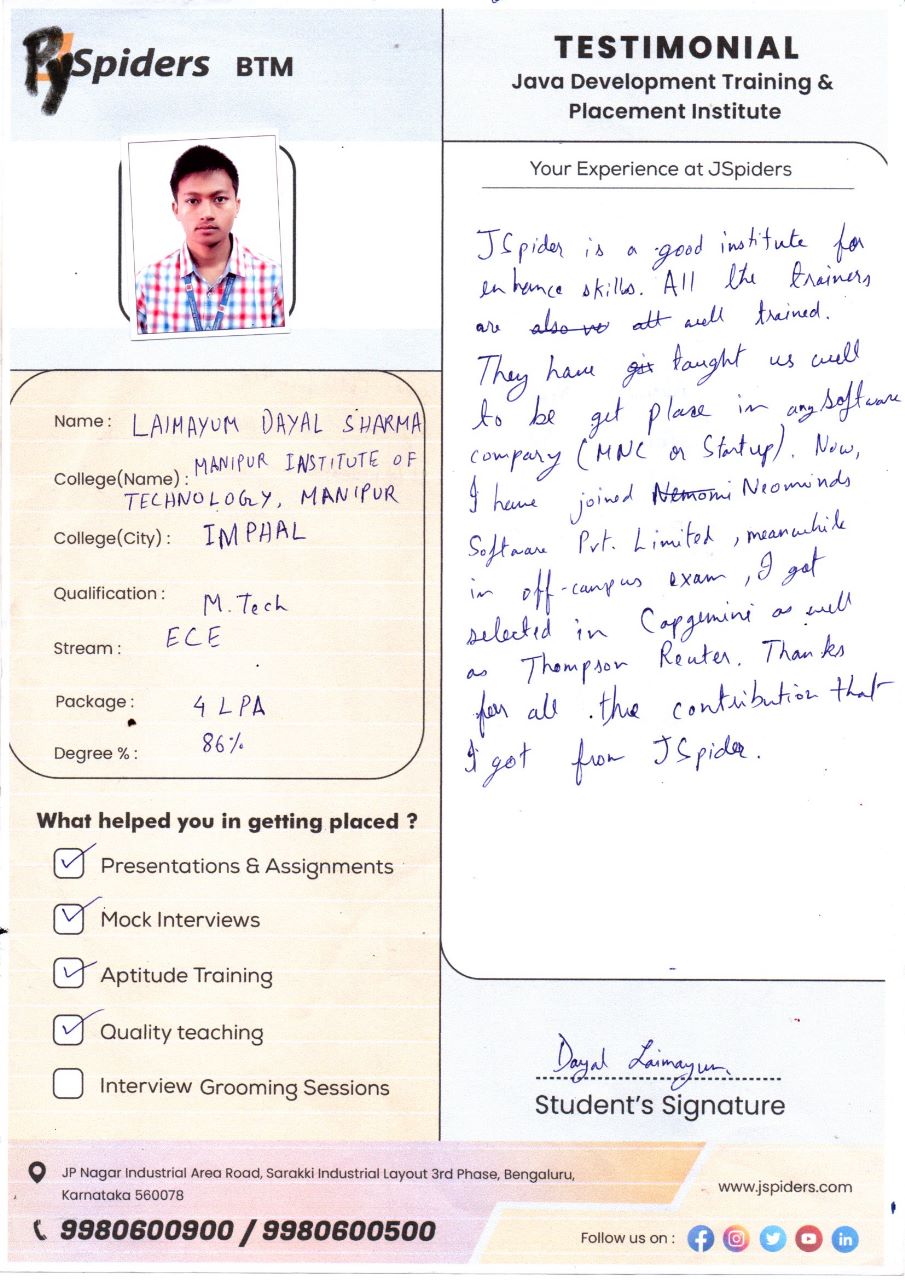 PySpiders BTM
TESTIMONIAL
Java Development Training &
Placement Institute
Name : LAIMAYUM DAYAL SHARMA
College(Name) : MANIPUR INSTITUTE OF
TECHNOLOGY, MANIPUR
College(City) : IMPHAL
Qualification : M.Tech
Stream : ECE
Package : 4 LPA
Degree % : 86%
What helped you in getting placed ?
Presentations & Assignments
Mock Interviews
Aptitude Training
Quality teaching
Interview Grooming Sessions
Your Experience at JSpiders
JSpider is a good institute for
enhance skills. All the trainers
are also ve all well trained.
They have taught us well
to be get place in any software
company (MNC or Startup). Now,
I have joined Nemomi Neominds
Software Pvt. Limited, meanwhile
in off-campus exam, I got
selected in Capgemini as well
as Thompson Reuter. Thanks
for all the contribution that
I got from JSpider.
Dayal Laimayum
Student's Signature
JP Nagar Industrial Area Road, Sarakki Industrial Layout 3rd Phase, Bengaluru,
Karnataka 560078
9980600900 / 9980600500
www.jspiders.com
Follow us on :